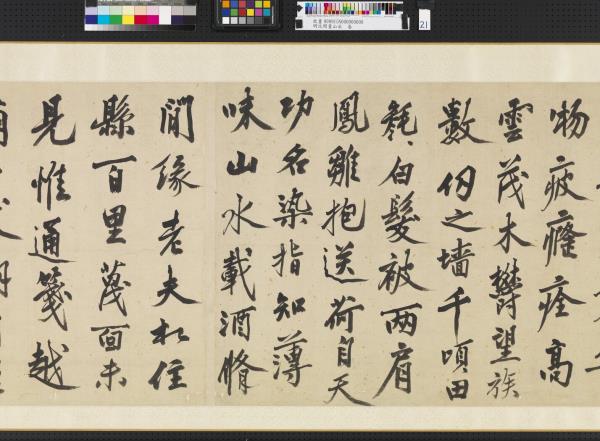 物疲癃痊高
雲茂木欝望族
數仞之墻千頃田
毿、白髮被兩肩
鳳雛抱送荷自天
功名染指知薄
味山水載酒脩
閒緣老夫住
縣百里蔑面未
見惟通箋越
21